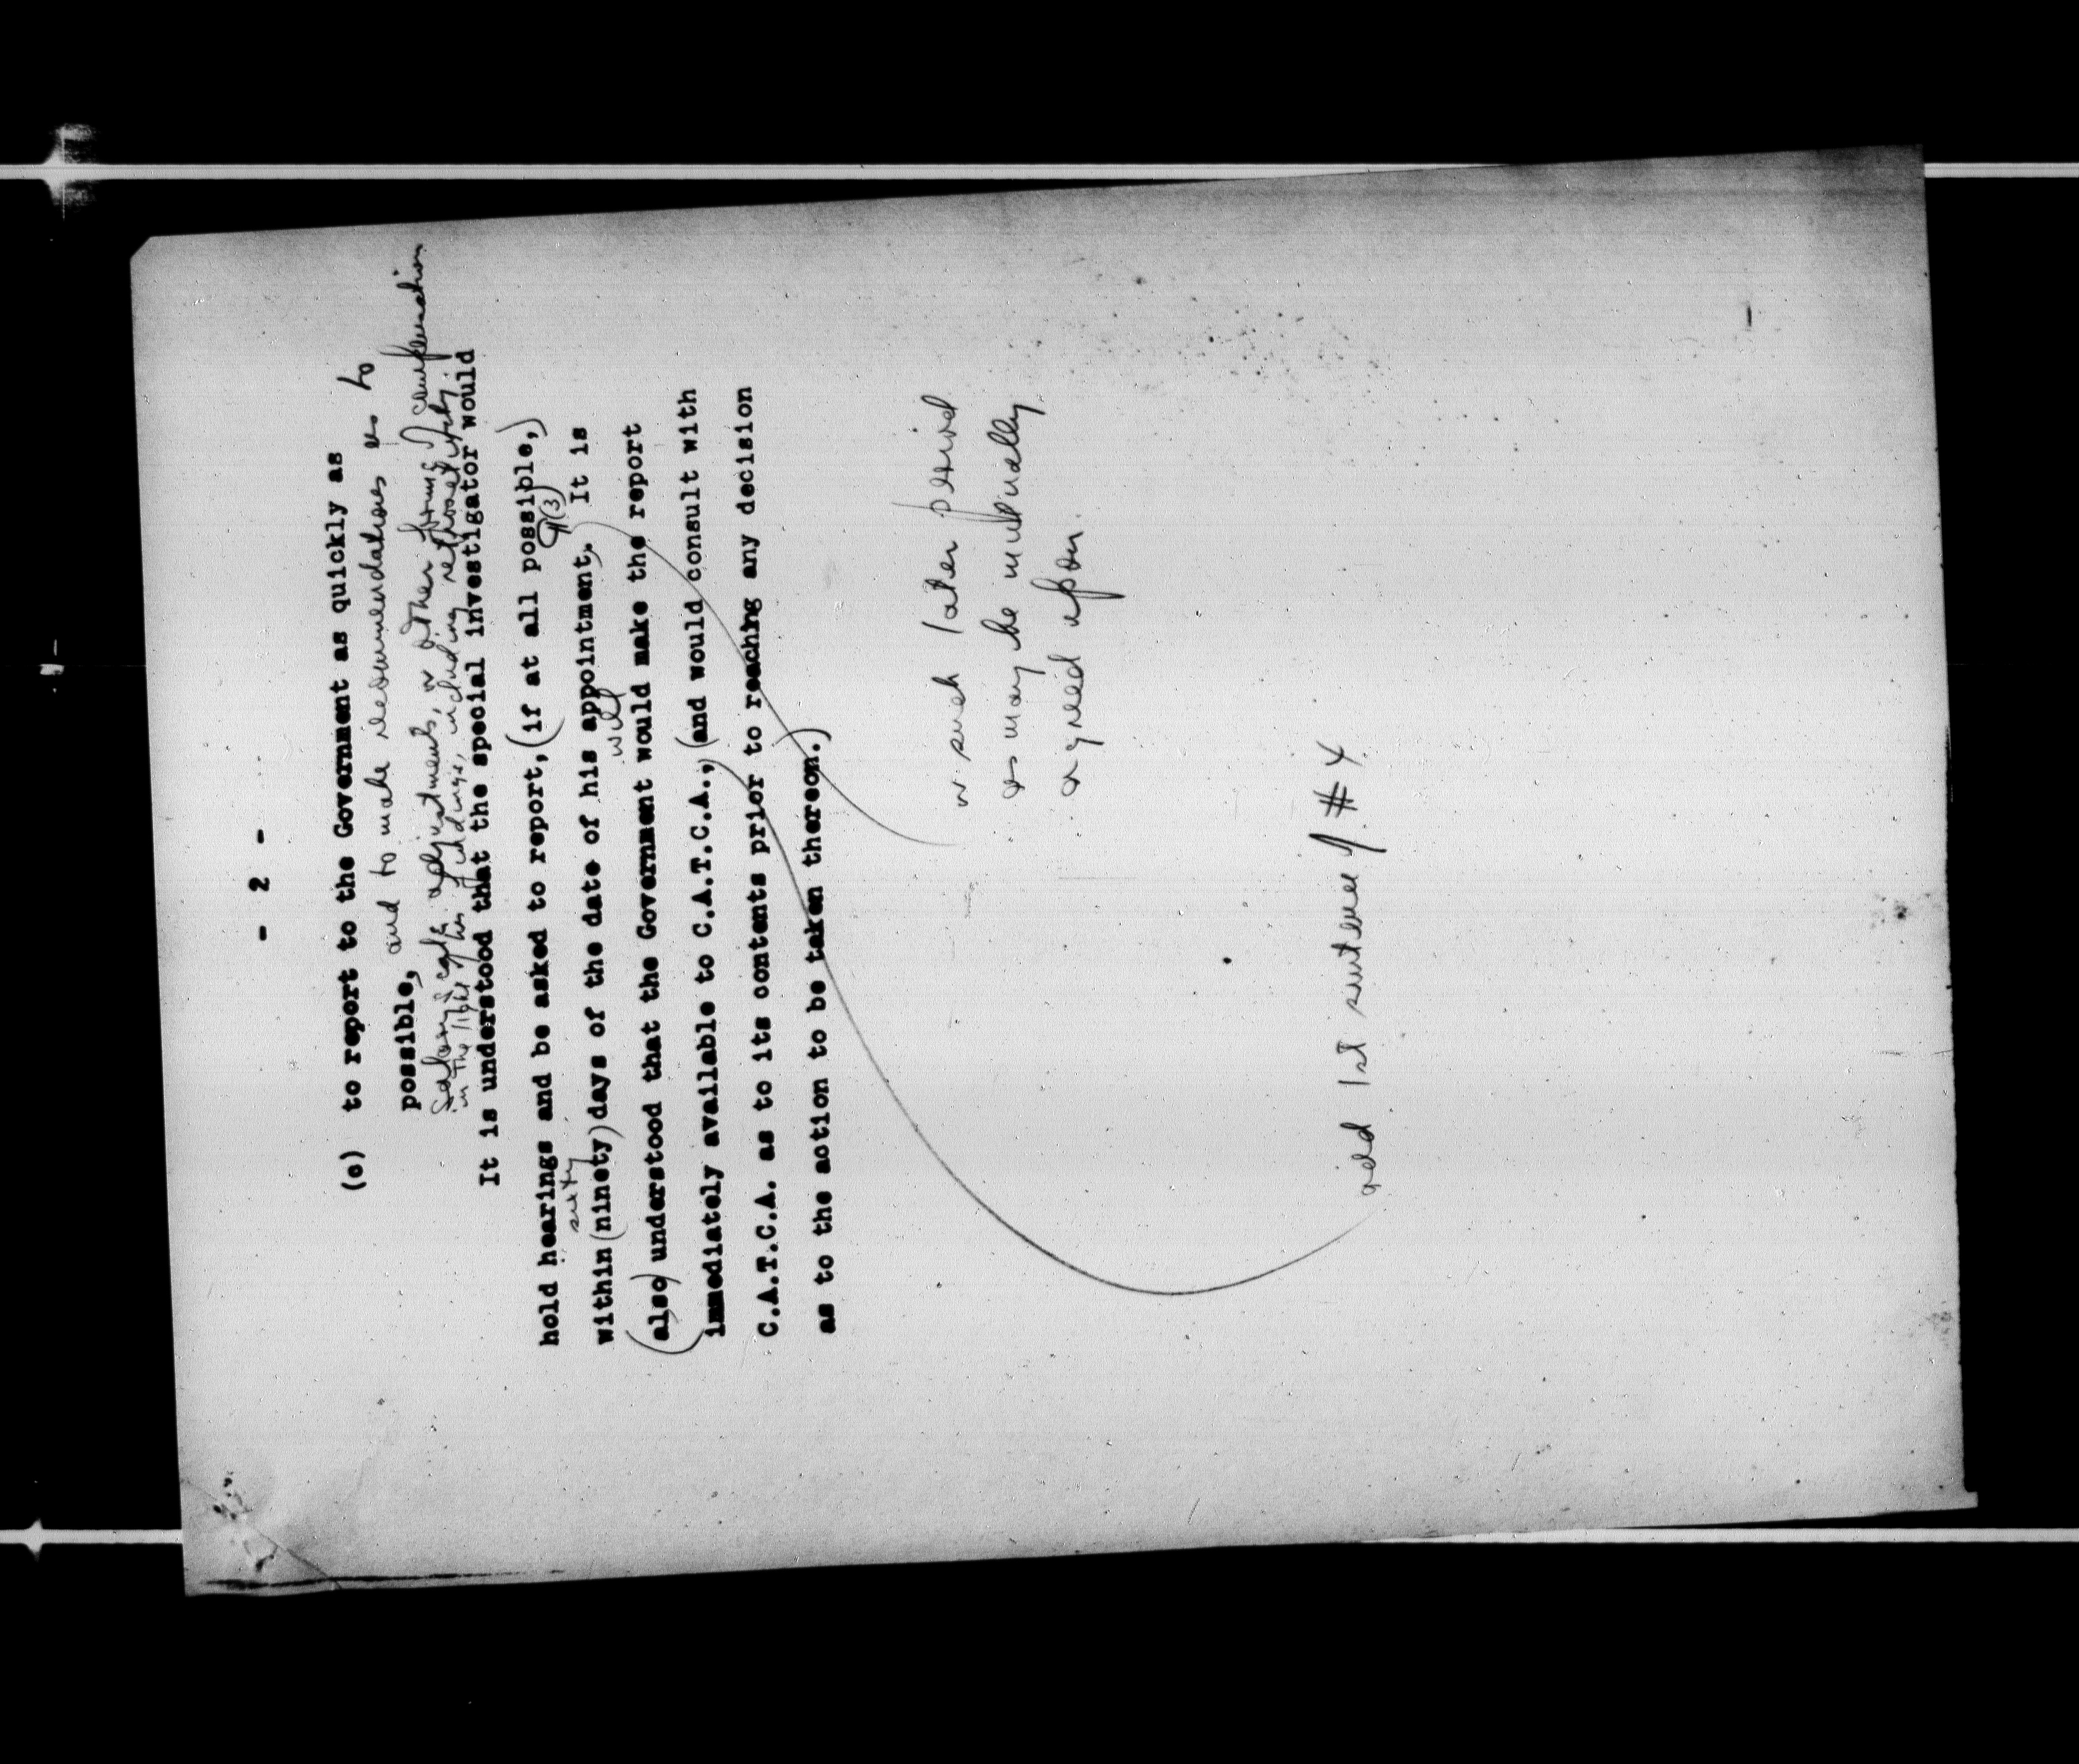 - 2 -
(c) to report to the Government as quickly as
possible, and to make recommendations as to
salary adjustments, or other forms of compensation
in the light of his findings, including retroactivity.
It is understood that the special investigator would
hold hearings and be asked to report, (if at all possible,)
sixty ¶(3)
within (ninety) days of the date of his appointment. It is
will
(also) understood that the Government would make the report
immediately available to C.A.T.C.A., (and would consult with
C.A.T.C.A. as to its contents prior to reaching any decision
as to the action to be taken thereon.)
or such later period
as may be mutually
agreed upon.
add 1st sentence ¶ # 4